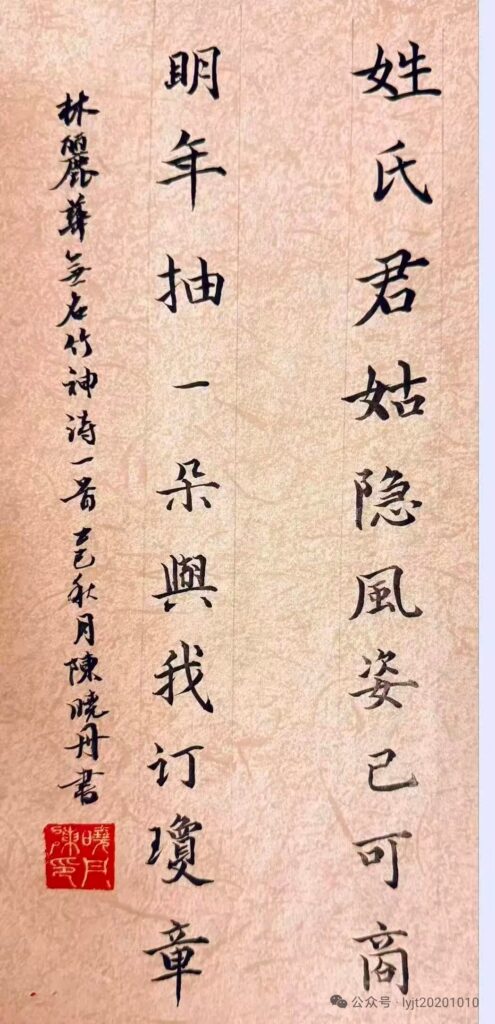 姓氏君姑隐風姿已可商
明年抽一朵與我订瓊章
林麗華無名竹神诗一首 乙巳秋月陳曉丹书
曉丹陳印
公众号 · lyjt20201010